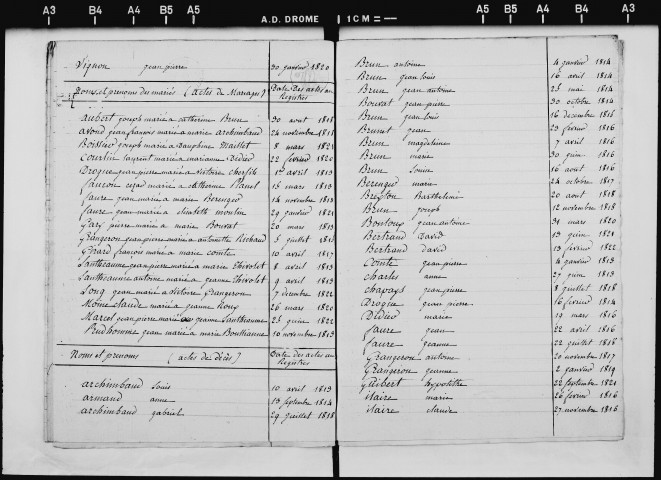 A3 B4 A4 B5 A5 A.D. DROME 1 CM = A5 B5 A4 B4 A3
Vignon jean pierre 30 janvier 1820
Noms et prenoms des mariés (actes de Mariages) Date Des actes au Registres
aubert joseph marié a catherine Brun 30 aout 1818
avond jean francois marié a marie archimbaud 24 novembre 1818
Boissier joseph marié a Dauphine Maillet 8 mars 1821
Courtin laurent marié a marianne Didier 22 février 1820
Drogue jean pierre marié a victoire 1er avril 1813
faucon cezar marié a catherine Planel 15 mars 1813
faure jean marié a marie Berenger 14 novembre 1813
faure jean marié a elisabeth moulin 29 janvier 1821
Gary pierre marié a marie Bouvat 20 mars 1813
Grangeron jean pierre marié a antoinette Richaud 5 juillet 1813
Girard francois marié a marie comte 10 avril 1817
Lantheaume jean pierre marié a marie thivolet 8 avril 1813
Lantheaume antoine marié a jeanne thivolet 9 avril 1813
Long jean marié a victoire Grangeron 7 decembre 1821
Mome claude marié a jeanne Roux 26 mars 1820
Marcel jean pierre marié a jeanne Lantheaume 25 juin 1822
Prudhomme jean marié a marie Bouthianne 10 novembre 1813
Noms et prenoms (actes de Décès) Date des actes au Registres
archimbaud louis 10 avril 1813
armand anne 13 septembre 1814
archimbaud gabriel 29 juillet 1818
Brun antoine 4 janvier 1814
Brun jean louis 16 avril 1814
Brun jean antoine 25 mai 1814
Bouvat jean pierre 30 octobre 1814
Brun jean louis 16 decembre 1815
Brunet jean 23 février 1816
Brun magdeleine 7 avril 1816
Brun marie 30 juin 1816
Brun 16 aout 1816
Berenger marie 24 octobre 1817
Breyton Barthelemi 20 aout 1818
Brun joseph 12 novembre 1818
Bontoux jean antoine 31 mars 1820
Bertrand David 13 juin 1821
Bertrand david 13 février 1822
Comte jean pierre 4 janvier 1813
charles anne 27 juin 1813
chapays jean pierre 8 juillet 1818
Drogue jean pierre 16 février 1814
Didier marie 19 mars 1816
faure jean 22 avril 1816
faure jeanne 22 juillet 1818
Grangeron antoine 20 novembre 1817
Grangeron jeanne 2 janvier 1819
Guibert hypolithe 22 septembre 1821
itaire marie 26 février 1816
itaire claude 27 novembre 1816